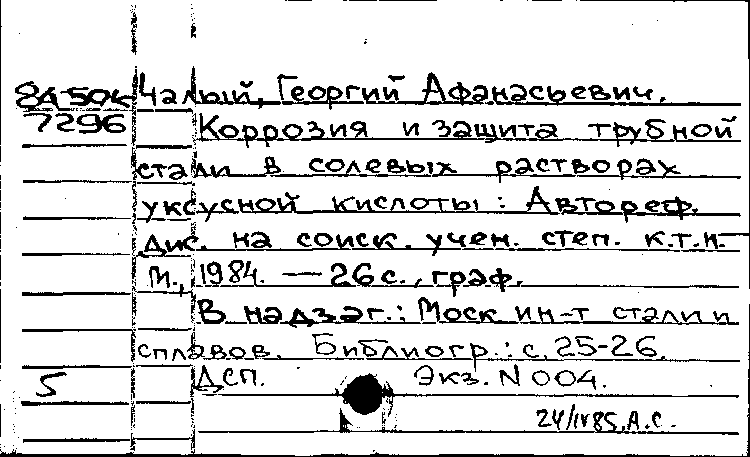 8А-50к Чалый, Георгий Афанасьевич.
7296 Коррозия и защита трубной
стали в солевых растворах
уксусной кислоты: Автореф.
дис. на соиск. учен. степ. к.т.н.—
М., 1984. — 26 с., граф.
В надзаг.: Моск ин-т стали и
сплавов. Библиогр.: с. 25-26.
5 ДСП. Экз. N 004.
24/IV85. А.С.